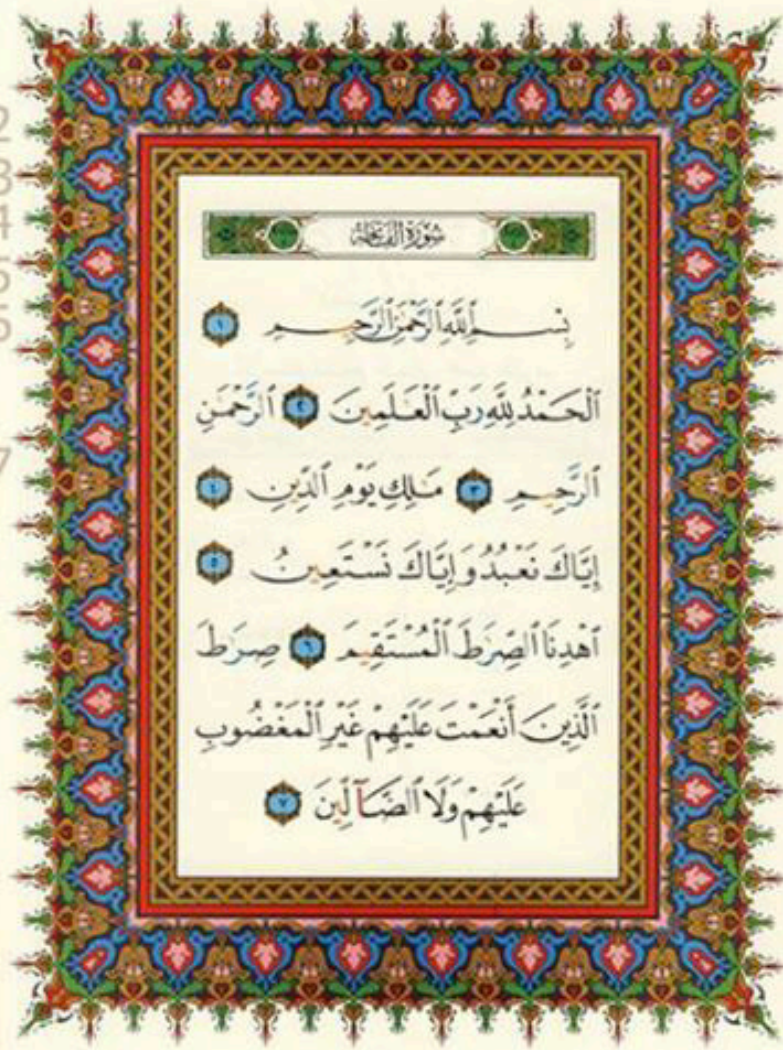 سُورَةُ الفَاتِحَةِ
بِسْمِ ٱللَّهِ ٱلرَّحْمَٰنِ ٱلرَّحِيمِ ١
ٱلْحَمْدُ لِلَّهِ رَبِّ ٱلْعَٰلَمِينَ ٢ ٱلرَّحْمَٰنِ
ٱلرَّحِيمِ ٣ مَٰلِكِ يَوْمِ ٱلدِّينِ ٤
إِيَّاكَ نَعْبُدُ وَإِيَّاكَ نَسْتَعِينُ ٥
ٱهْدِنَا ٱلصِّرَٰطَ ٱلْمُسْتَقِيمَ ٦ صِرَٰطَ
ٱلَّذِينَ أَنْعَمْتَ عَلَيْهِمْ غَيْرِ ٱلْمَغْضُوبِ
عَلَيْهِمْ وَلَا ٱلضَّآلِّينَ ٧
2
3
4
5
6
7